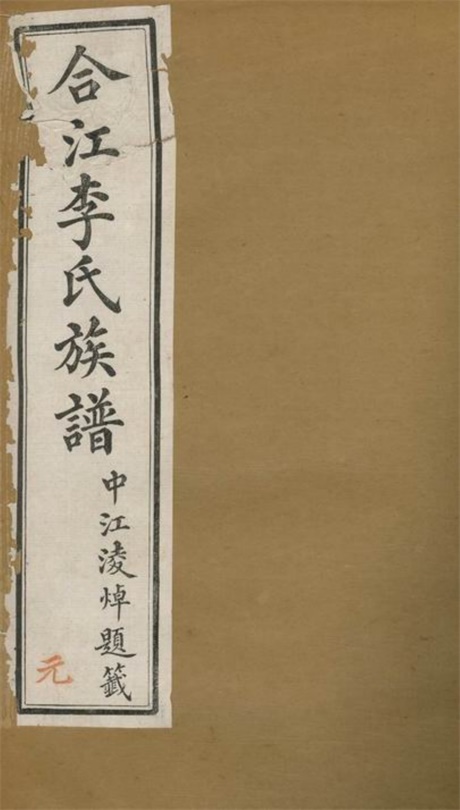 合江李氏族譜
中江淩焯題籤
元